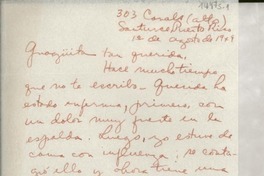 303 Canals (altos)
Santurce, Puerto Rico
12 de agosto de 1949
tan querida,
Hace mucho tiempo
que no te escribo. Querida he
estado enferma, primero, con
un dolor muy fuerte en la
espalda. Luego, yo estuve de
cama con influenza; se conta-
gió ella y ahora tiene una